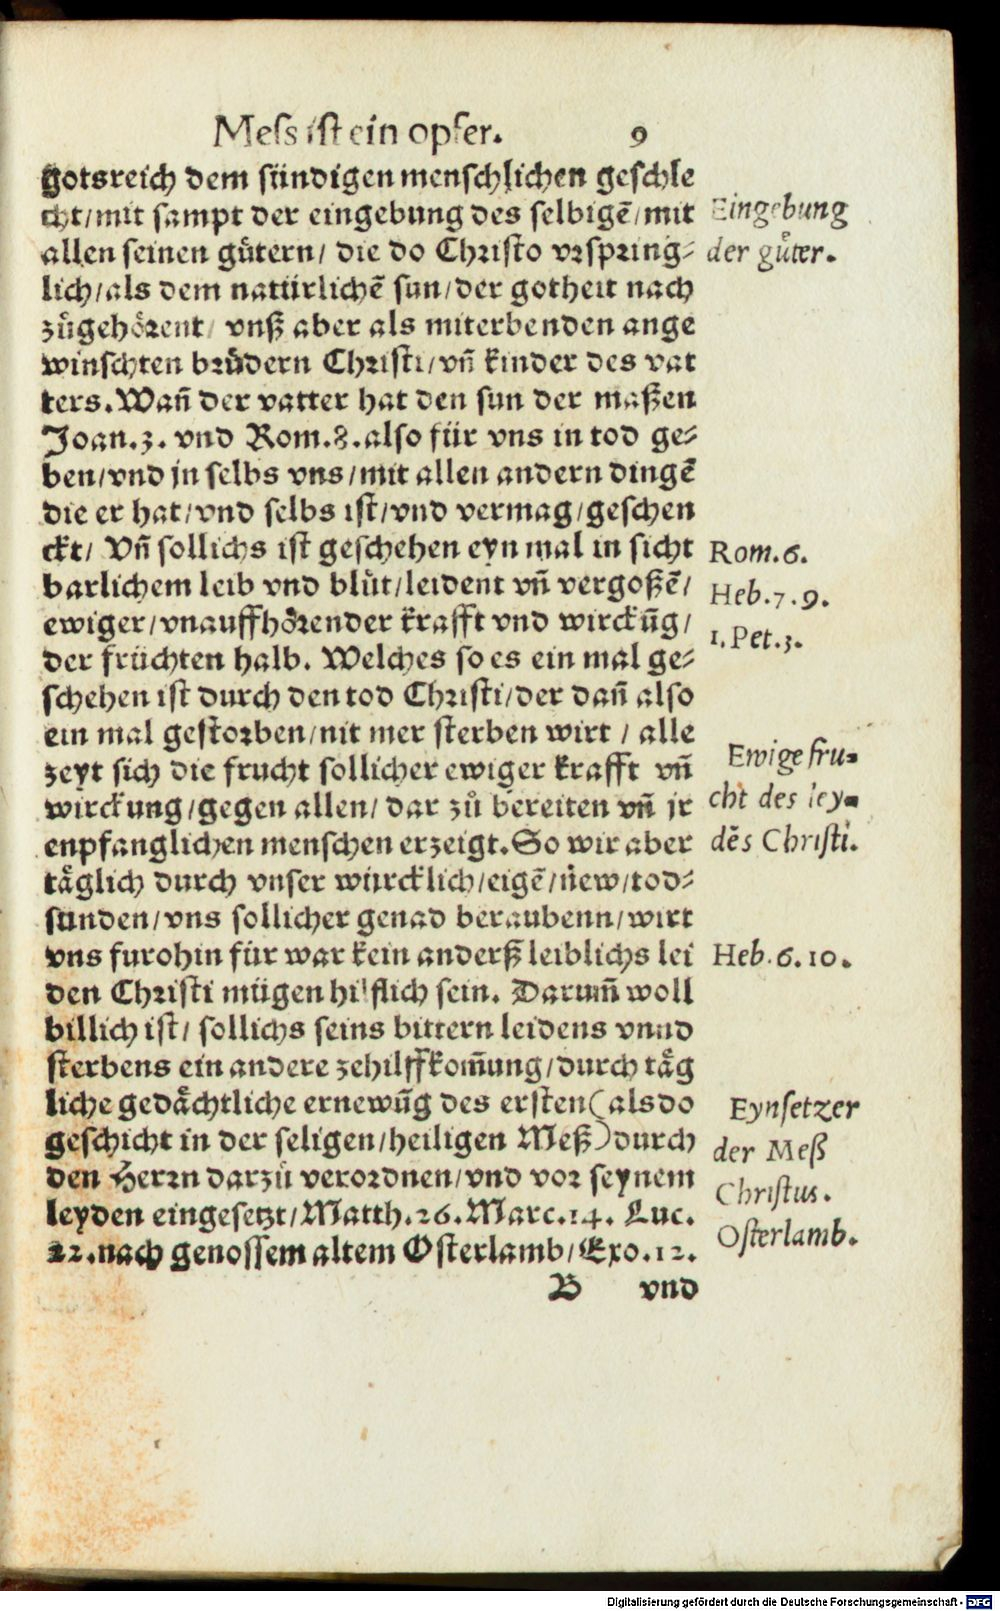 Mess ist ein opfer. 9
gotsreich dem sündigen menschlichen geschle
cht/mit sampt der eingebung des selbigē/mit
allen seinen gůtern/ die do Christo vrspring⸗
lich/als dem natürlichē sun/der gotheit nach
zůgehörent/ vnß aber als miterbenden ange
winschten brůdern Christi/vñ kinder des vat
ters. Wañ der vatter hat den sun der maßen
Joan.3. vnd Rom.8.also für vns in tod ge⸗
ben/vnd jn selbs vns/mit allen andern dingē
die er hat/vnd selbs ist/vnd vermag/geschen
ckt/ Vñ sollichs ist geschehen eyn mal in sicht
barlichem leib vnd blůt/leident vñ vergoßē/
ewiger/vnauffhörender krafft vnd wirckũg/
der früchten halb. Welches so es ein mal ge⸗
schehen ist durch den tod Christi/der dañ also
ein mal gestorben/nit mer sterben wirt / alle
zeyt sich die frucht sollicher ewiger krafft vñ
wirckung/gegen allen/ dar zů bereiten vñ jr
enpfanglichen menschen erzeigt. So wir aber
täglich durch vnser würcklich/eigē/new/tod⸗
sunden/vns sollicher genad beraubenn/wirt
vns furohin für war kein anderß leiblichs lei
den Christi mügen hilflich sein. Darum̄ woll
billich ist/ sollichs seins bittern leidens vnnd
sterbens ein andere zehilffkom̄ung/durch täg
liche gedächtliche ernewũg des ersten (als do
geschicht in der seligen/heiligen Meß) durch
den Herrn darzů verordnen/vnd vor seynem
leyden eingesetzt/Matth.26.Marc.14. Luc.
22.nach genossem altem Osterlamb/Exo.12.
B vnd
Eingebung
der gůter.
Rom.6.
Heb.7.9.
1.Pet.3.
Ewige fru-
cht des ley-
dēs Christi.
Heb.6.10.
Eynsetzer
der Meß
Christus.
Osterlamb.
Digitalisierung gefördert durch die Deutsche Forschungsgemeinschaft - DFG